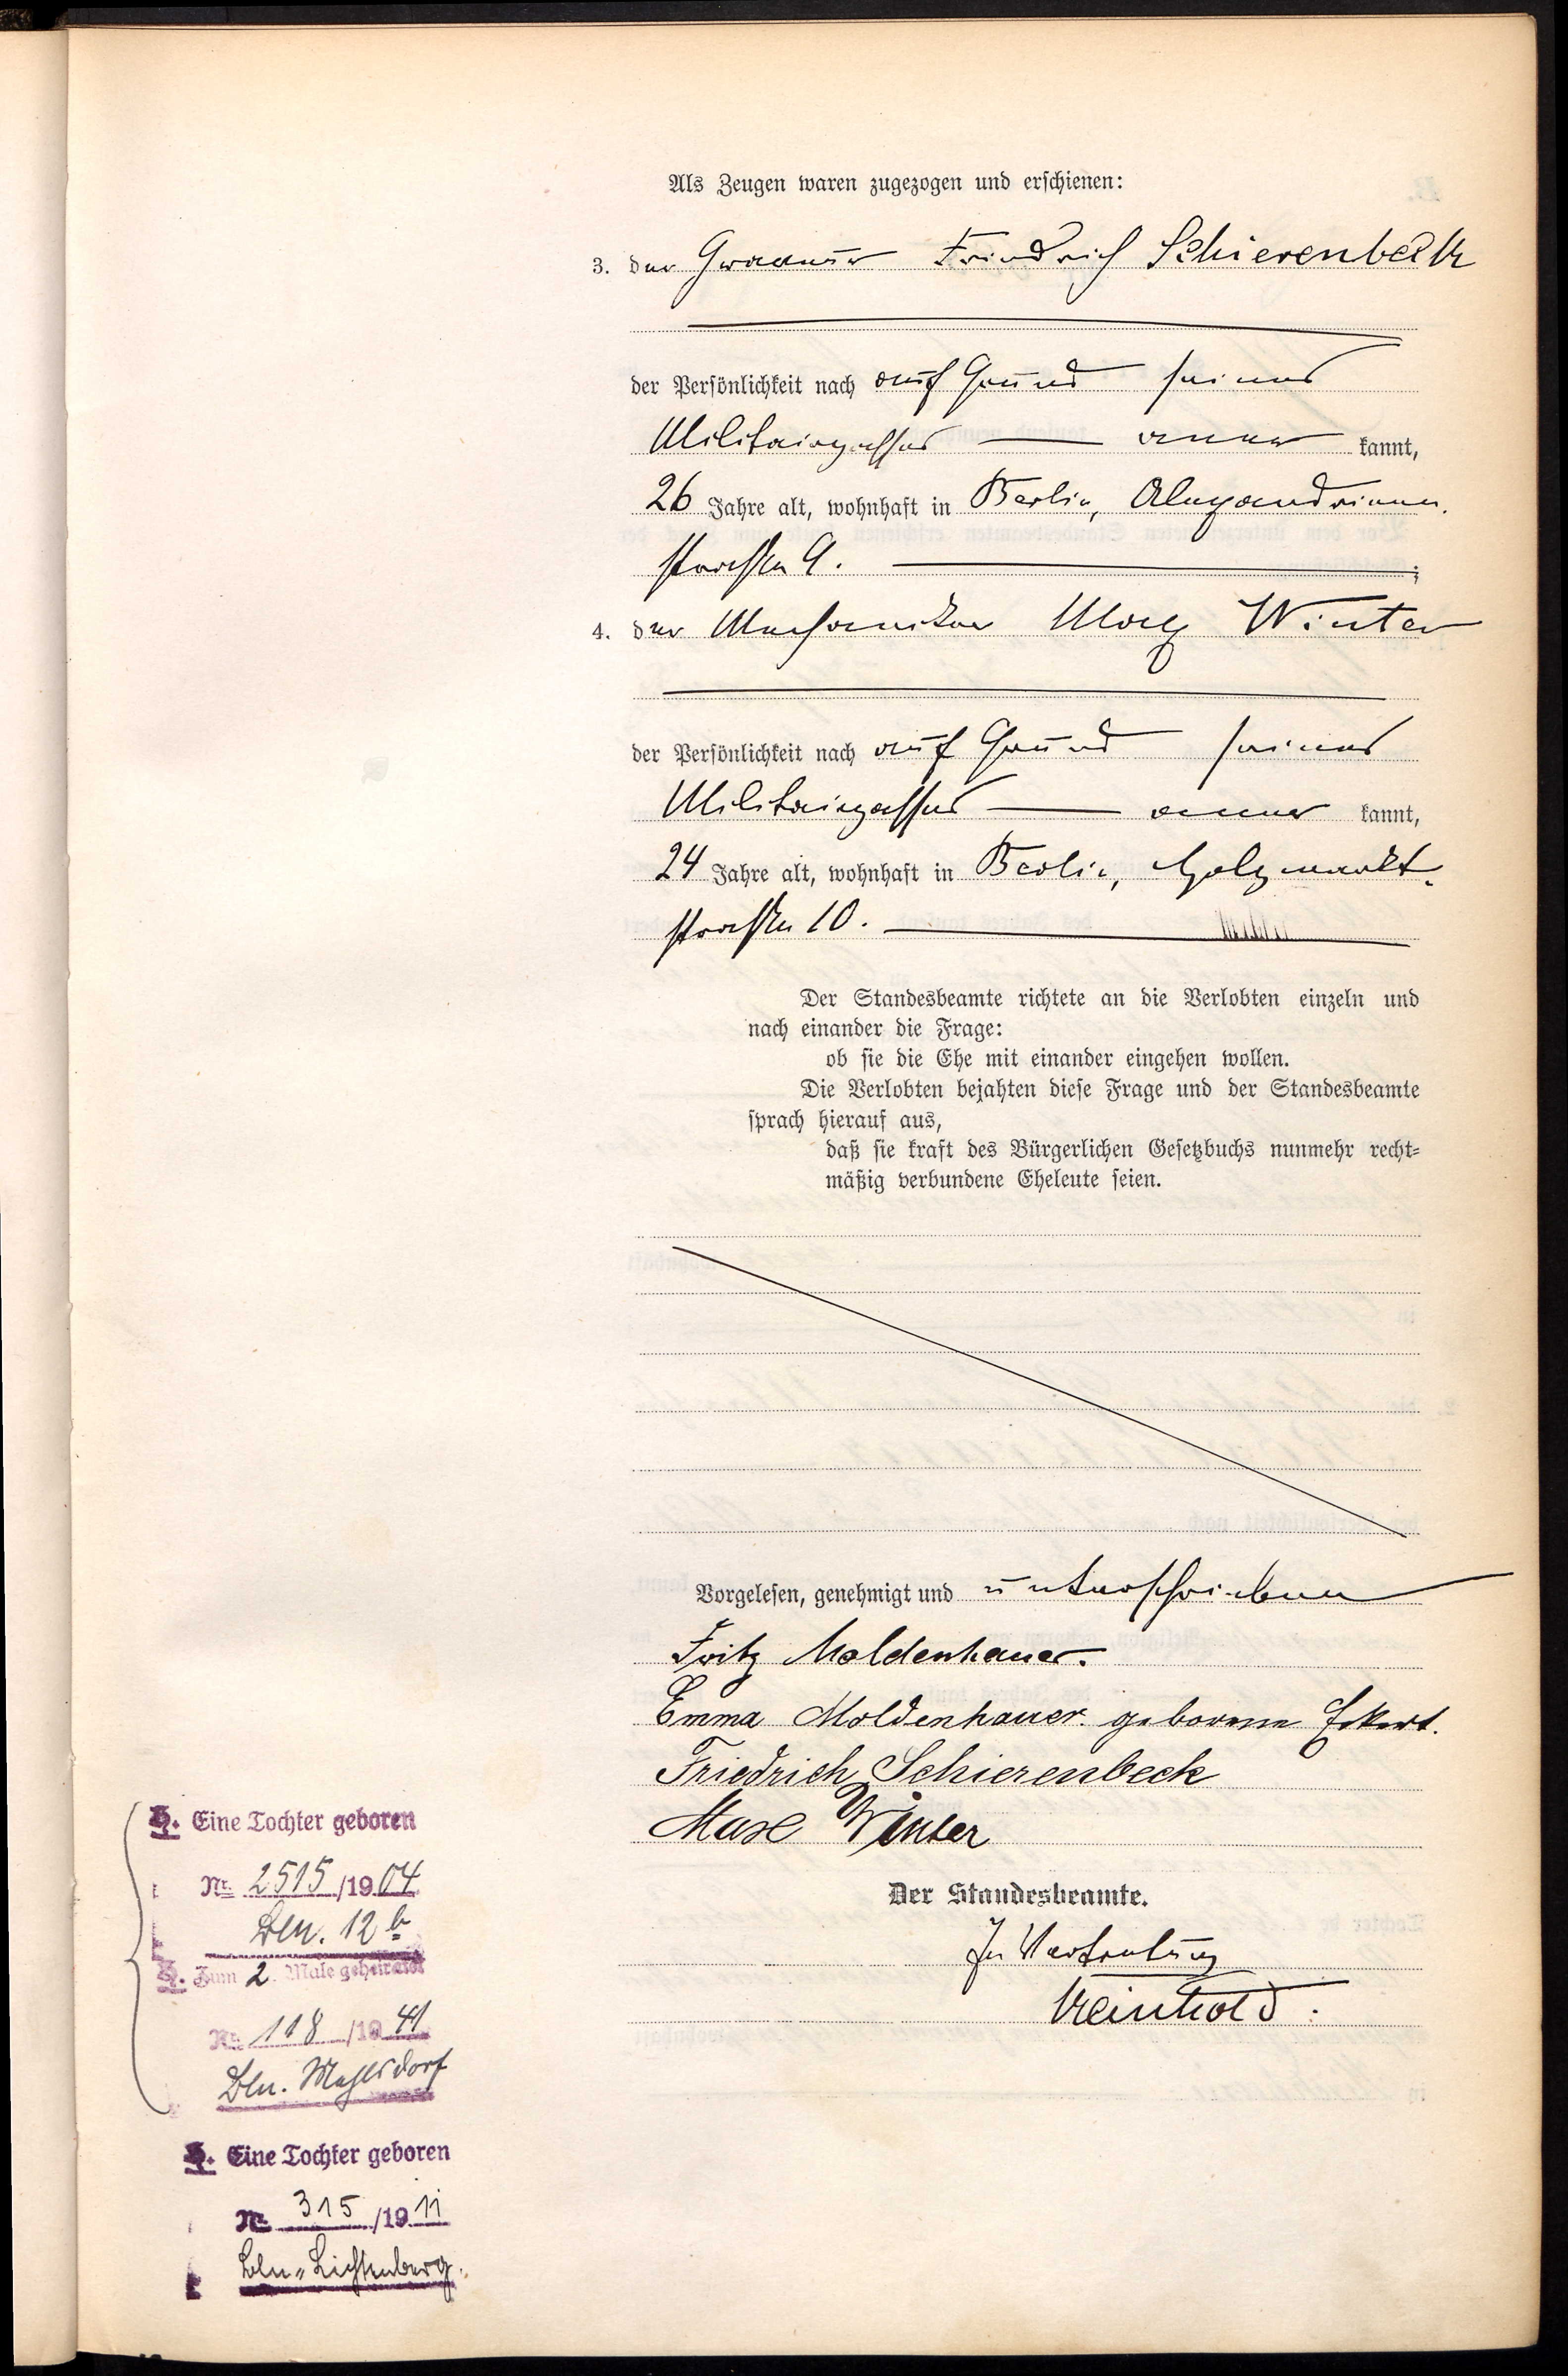 Als Zeugen waren zugezogen und erschienen:
3. der Graveur Friedrich Schierenbeck
der Persönlichkeit nach auf Grund seines
Militairpasses — aner kannt,
26 Jahre alt, wohnhaft in Berlin, Alexandrinen-
straße 9. — ;
4. der Mechaniker Max Winter
der Persönlichkeit nach auf Grund seines
Militairpasses — aner kannt,
24 Jahre alt, wohnhaft in Berlin, Holzmarkt-
straße 10. —
Der Standesbeamte richtete an die Verlobten einzeln und
nach einander die Frage:
ob sie die Ehe mit einander eingehen wollen.
Die Verlobten bejahten diese Frage und der Standesbeamte
sprach hierauf aus,
daß sie kraft des Bürgerlichen Gesetzbuchs nunmehr recht-
mäßig verbundene Eheleute seien.
Vorgelesen, genehmigt und unterschrieben
Fritz Moldenhauer.
Emma Moldenhauer geborene Eckert.
Friedrich Schierenbeck
Max Winter
Der Standesbeamte.
In Vertretung
Reinhold.
Eine Tochter geboren
Nr. 2515/1904
Bln. 12b
Zum 2. Male geheiratet
Nr. 118/1941
Bln. Mahlsdorf
Eine Tochter geboren
Nr. 315/1911
Bln-Lichtenberg.